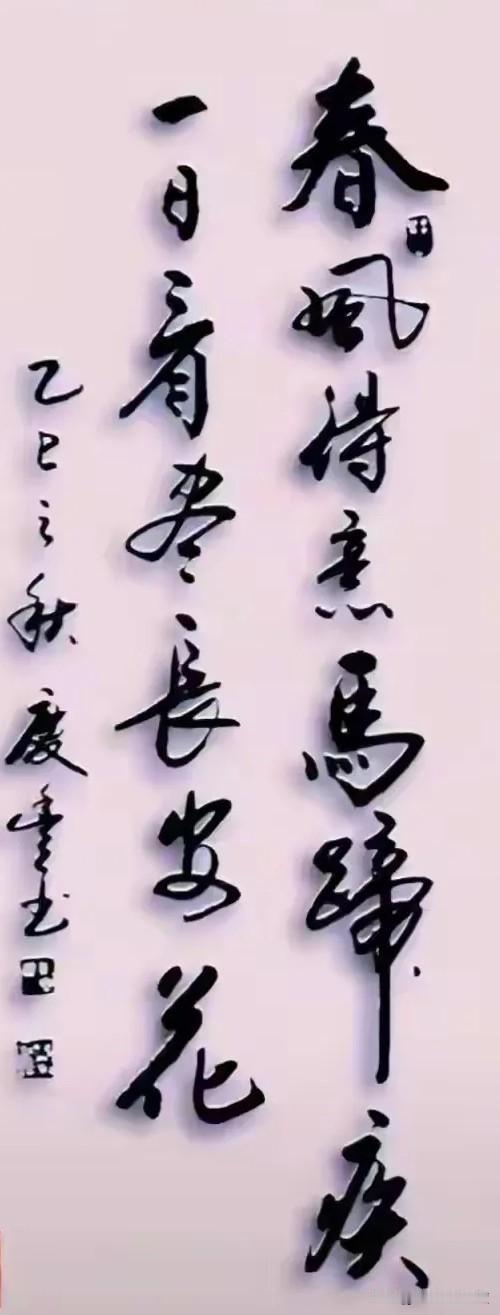 春風得意馬蹄疾
一日看盡長安花
乙巳之秋慶雲书